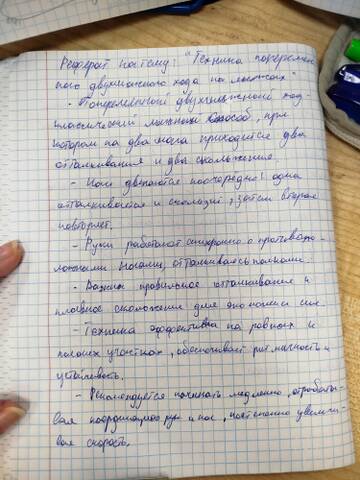 Реферат на тему: "Техника поперемен
ного двухшажного хода на лыжах"
- Попеременный двухшажный ход
классический лыжный способ, при
котором на два шага приходится два
отталкивания и два скольжения.
- Ноги двигаются поочередно: одна
отталкивается и скользит, затем вторая
повторяет.
- Руки работают синхронно с противопо-
ложными ногами, отталкиваясь палками.
- Важны правильное отталкивание и
плавное скольжение для экономии сил.
- Техника эффективна на ровных и
пологих участках, обеспечивает ритмичность и
устойчивость.
- Рекомендуется начинать медленно, отрабаты-
вая координацию рук и ног, постепенно увеличи-
вая скорость.